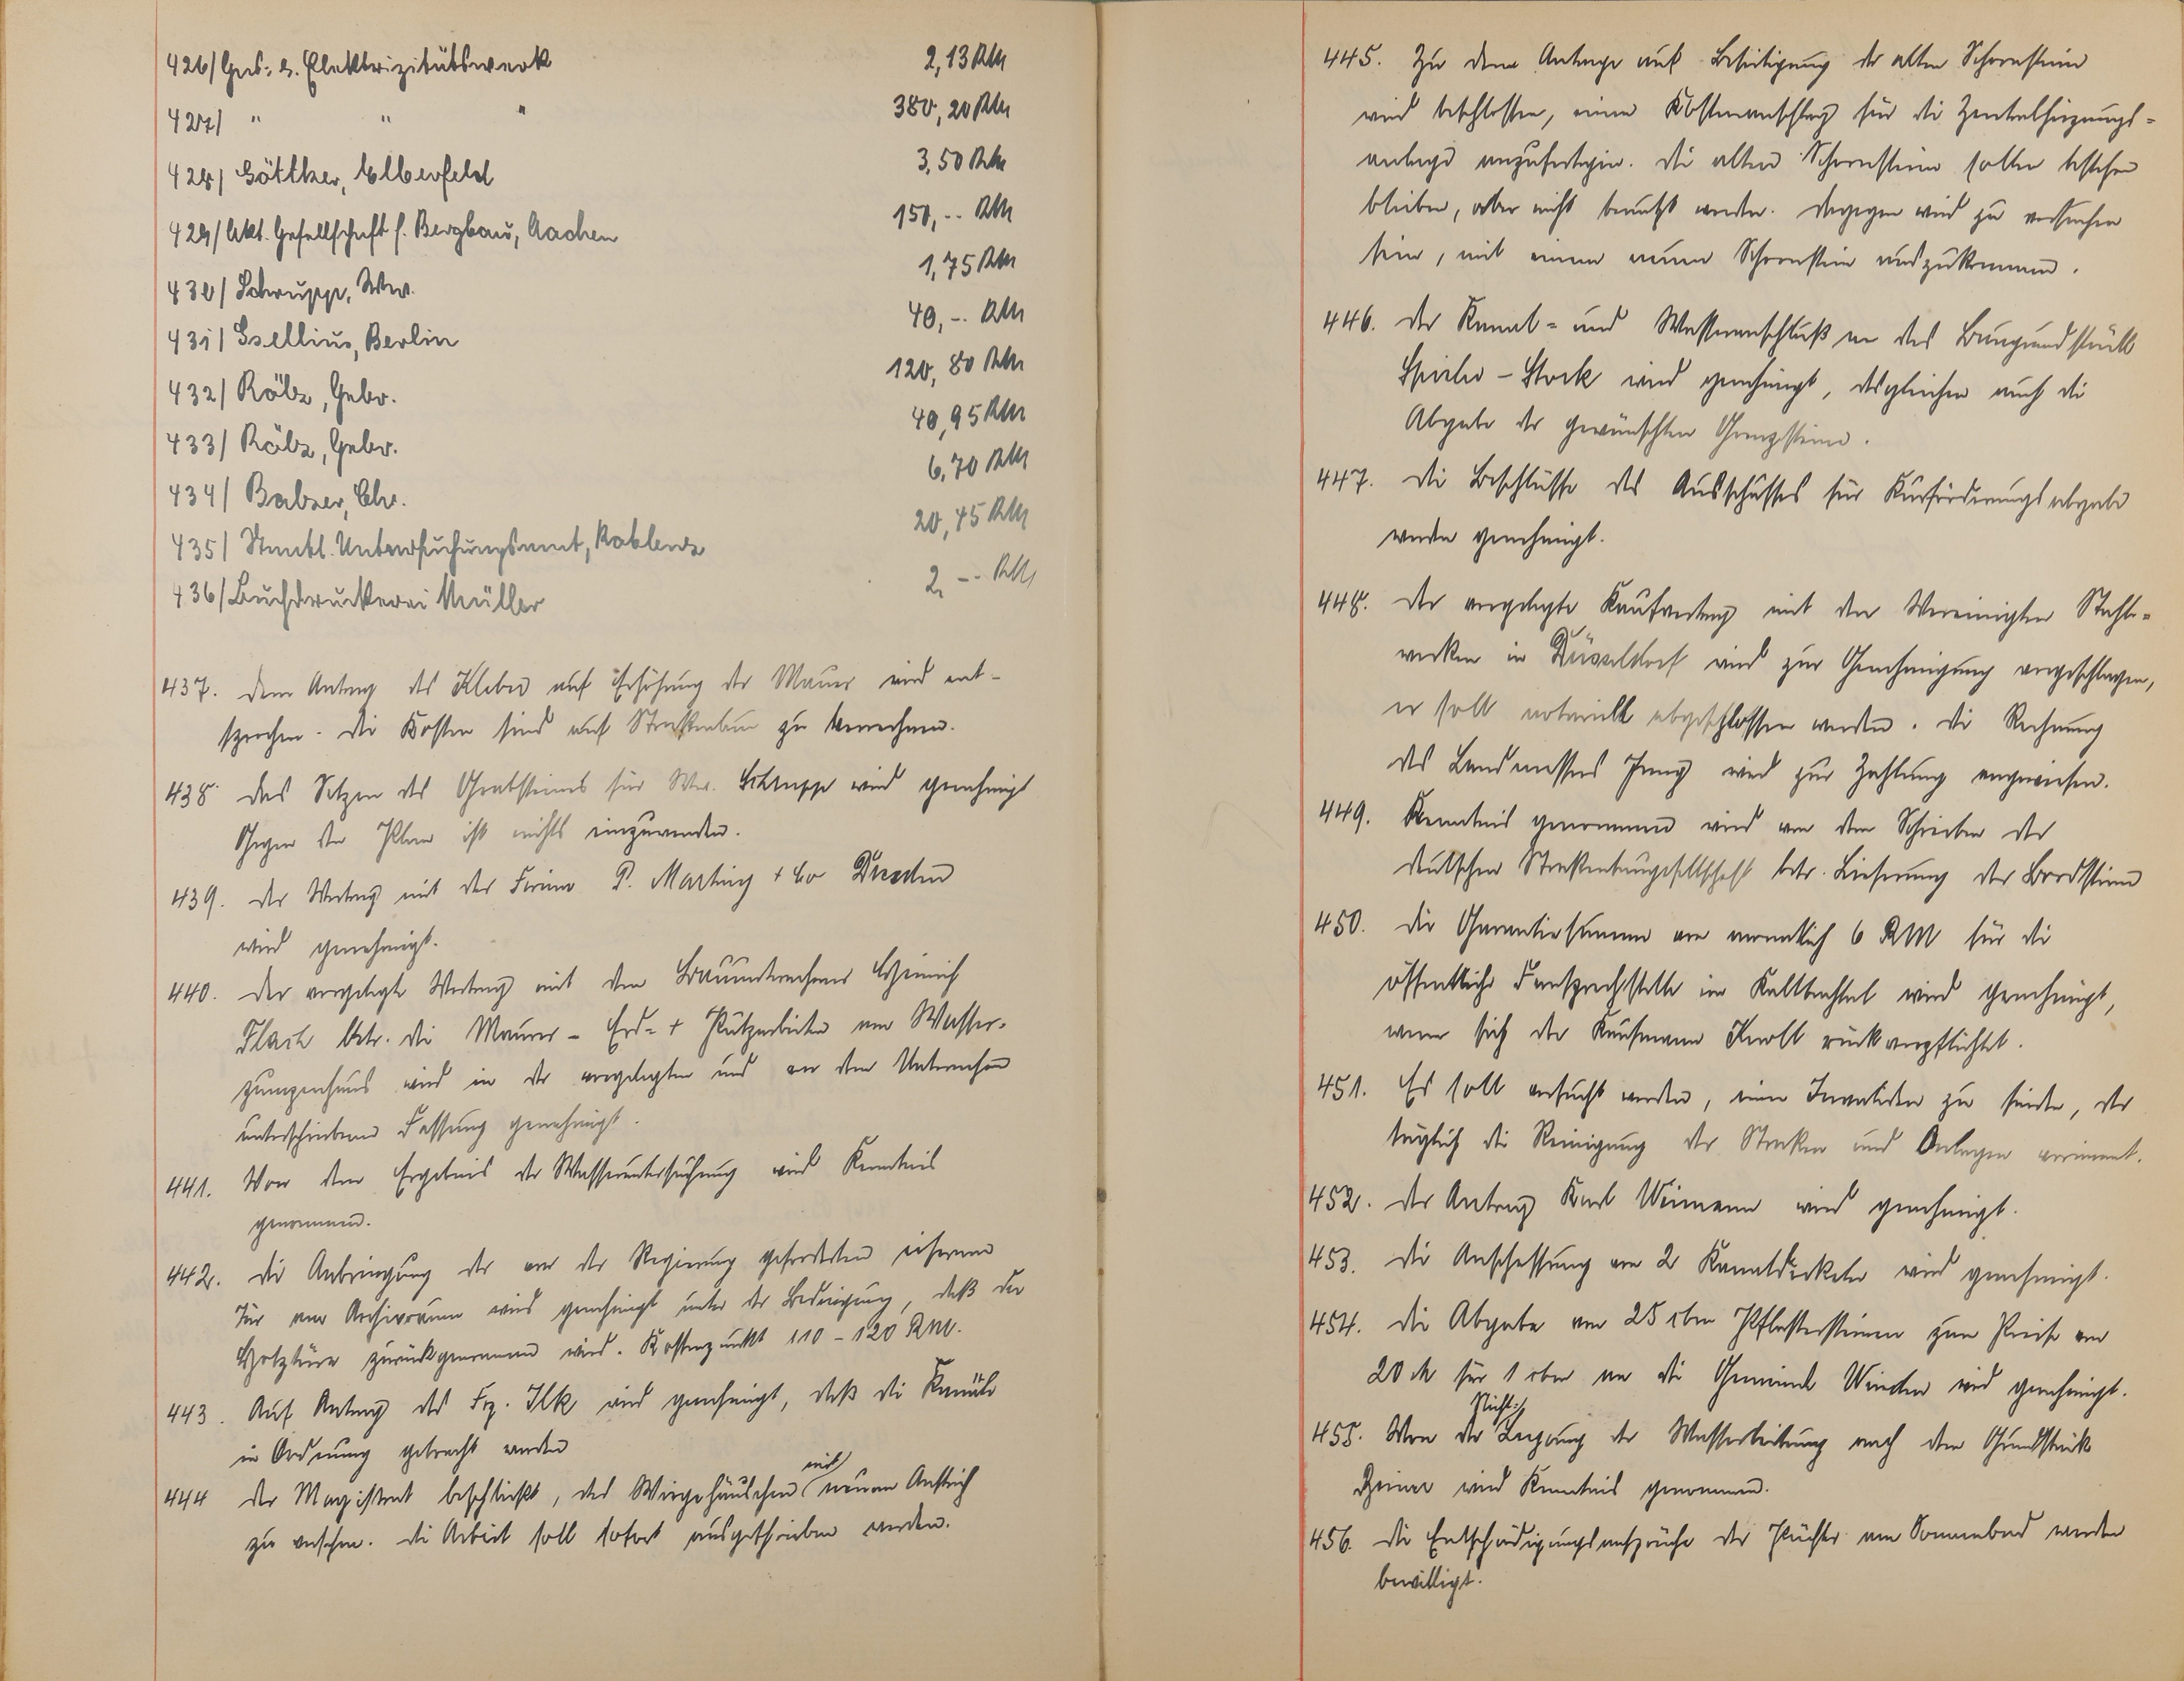 426/ Gas- u. Elektrizitätswerk 2,13 RM
427/ " " " 380,20 RM
428/ Göttker, Elberfeld 3,50 RM
429/ Akt. Gesellschaft f. Bergbau, Aachen 150,-- RM
430/ Schrupp, Ww. 1,75 RM
431/ Gsellius, Berlin 40,-- RM
432/ Rölz, Gebr. 120,80 RM
433/ Rölz, Gebr. 40,95 RM
434/ Balzer, Chr. 6,70 RM
435/ Staatl. Untersuchungsamt, Koblenz 20,45 RM
436/ Buchdruckerei Müller 2,-- RM
437. Dem Antrag des Kleber auf Erhöhung der Mauer wird ent-
sprochen. Die Kosten sind auf Straßenbau zu verrechnen.
438. Das Setzen des Grabsteines für Ww. Schrupp wird genehmigt
Gegen den Plan ist nichts einzuwenden.
439. Der Vertrag mit der Firma P. Martiny + Co Dresden
wird genehmigt.
440. Der vorgelegte Vertrag mit dem Bauunternehmer Heinrich
Flach betr. die Maurer- Erd- + Putzarbeiten am Wasser-
pumpenhaus wird in der vorgelegten und von dem Unternehmer
unterschriebenen Fassung genehmigt.
441. Von dem Ergebnis der Wasseruntersuchung wird Kenntnis
genommen.
442. Die Anbringung der von der Regierung geforderten eisernen
Tür am Archivraum wird genehmigt unter der Bedingung, daß die
Holztüre zurückgenommen wird. Kostenpunkt 110 - 120 RM.
443. Auf Antrag des Frz. Ilk wird genehmigt, daß die Kanäle
in Ordnung gebracht werden
444 Der Magistrat beschließt, das Wiegehäuschen mit neuem Anstrich
zu versehen. Die Arbeit soll sofort ausgeschrieben werden.
445. Zu dem Antrage auf Beseitigung der alten Schornsteine
wird beschlossen, einen Kostenanschlag für die Zentralheizungs-
anlage anzufertigen. Die alten Schornsteine sollen bestehen
bleiben, aber nicht benutzt werden. Dagegen wird zu versuchen
sein, mit einem neuen Schornstein auszukommen.
446. Der Kanal- und Wasseranschluß an das Baugrundstück
Spieler - Stork wird genehmigt, desgleichen auch die
Abgabe der gewünschten Grenzsteine.
447. Die Beschlüsse des Ausschusses für Kurförderungsabgabe
werden genehmigt.
448. Der vorgelegte Kaufvertrag mit den Vereinigten Stahl-
werken in Düsseldorf wird zur Genehmigung vorgeschlagen,
er soll notariell abgeschlossen werden. Die Rechnung
des Landmessers Jung wird zur Zahlung angewiesen.
449. Kenntnis genommen wird von dem Schreiben der
deutschen Straßenbaugesellschaft betr. Lieferung der Bordsteine
450. Die Garantiesumme von monatlich 6 RM für die
öffentliche Fernsprechstelle im Kaltbachtal wird genehmigt,
wenn sich der Kaufmann Knoll rückverpflichtet.
451. Es soll versucht werden, einen Invaliden zu finden, der
täglich die Reinigung der Straßen und Anlagen vornimmt.
452. Der Antrag Karl Weimann wird genehmigt.
453. Die Anschaffung von 2 Kanaldeckeln wird genehmigt.
454. Die Abgabe von 25 cbm Pflastersteinen zum Preise von
20 M für 1 cbm an die Gemeinde Winden wird genehmigt.
455. Von der Nicht-Legung der Wasserleitung nach dem Grundstück
wird Kenntnis genommen.
456. Die Entschädigungsansprüche der Pächter am Sonnenbad werden
bewilligt.